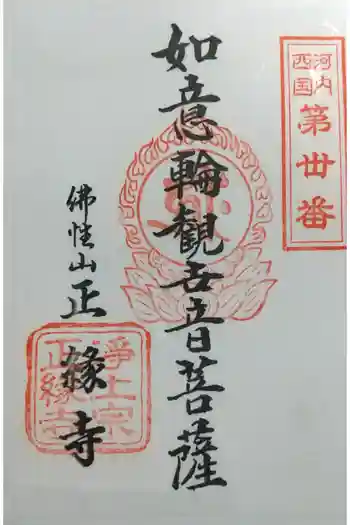 河内
西国
第丗番
如意輪觀世音菩薩
佛性山 正縁寺
浄土宗
正縁寺